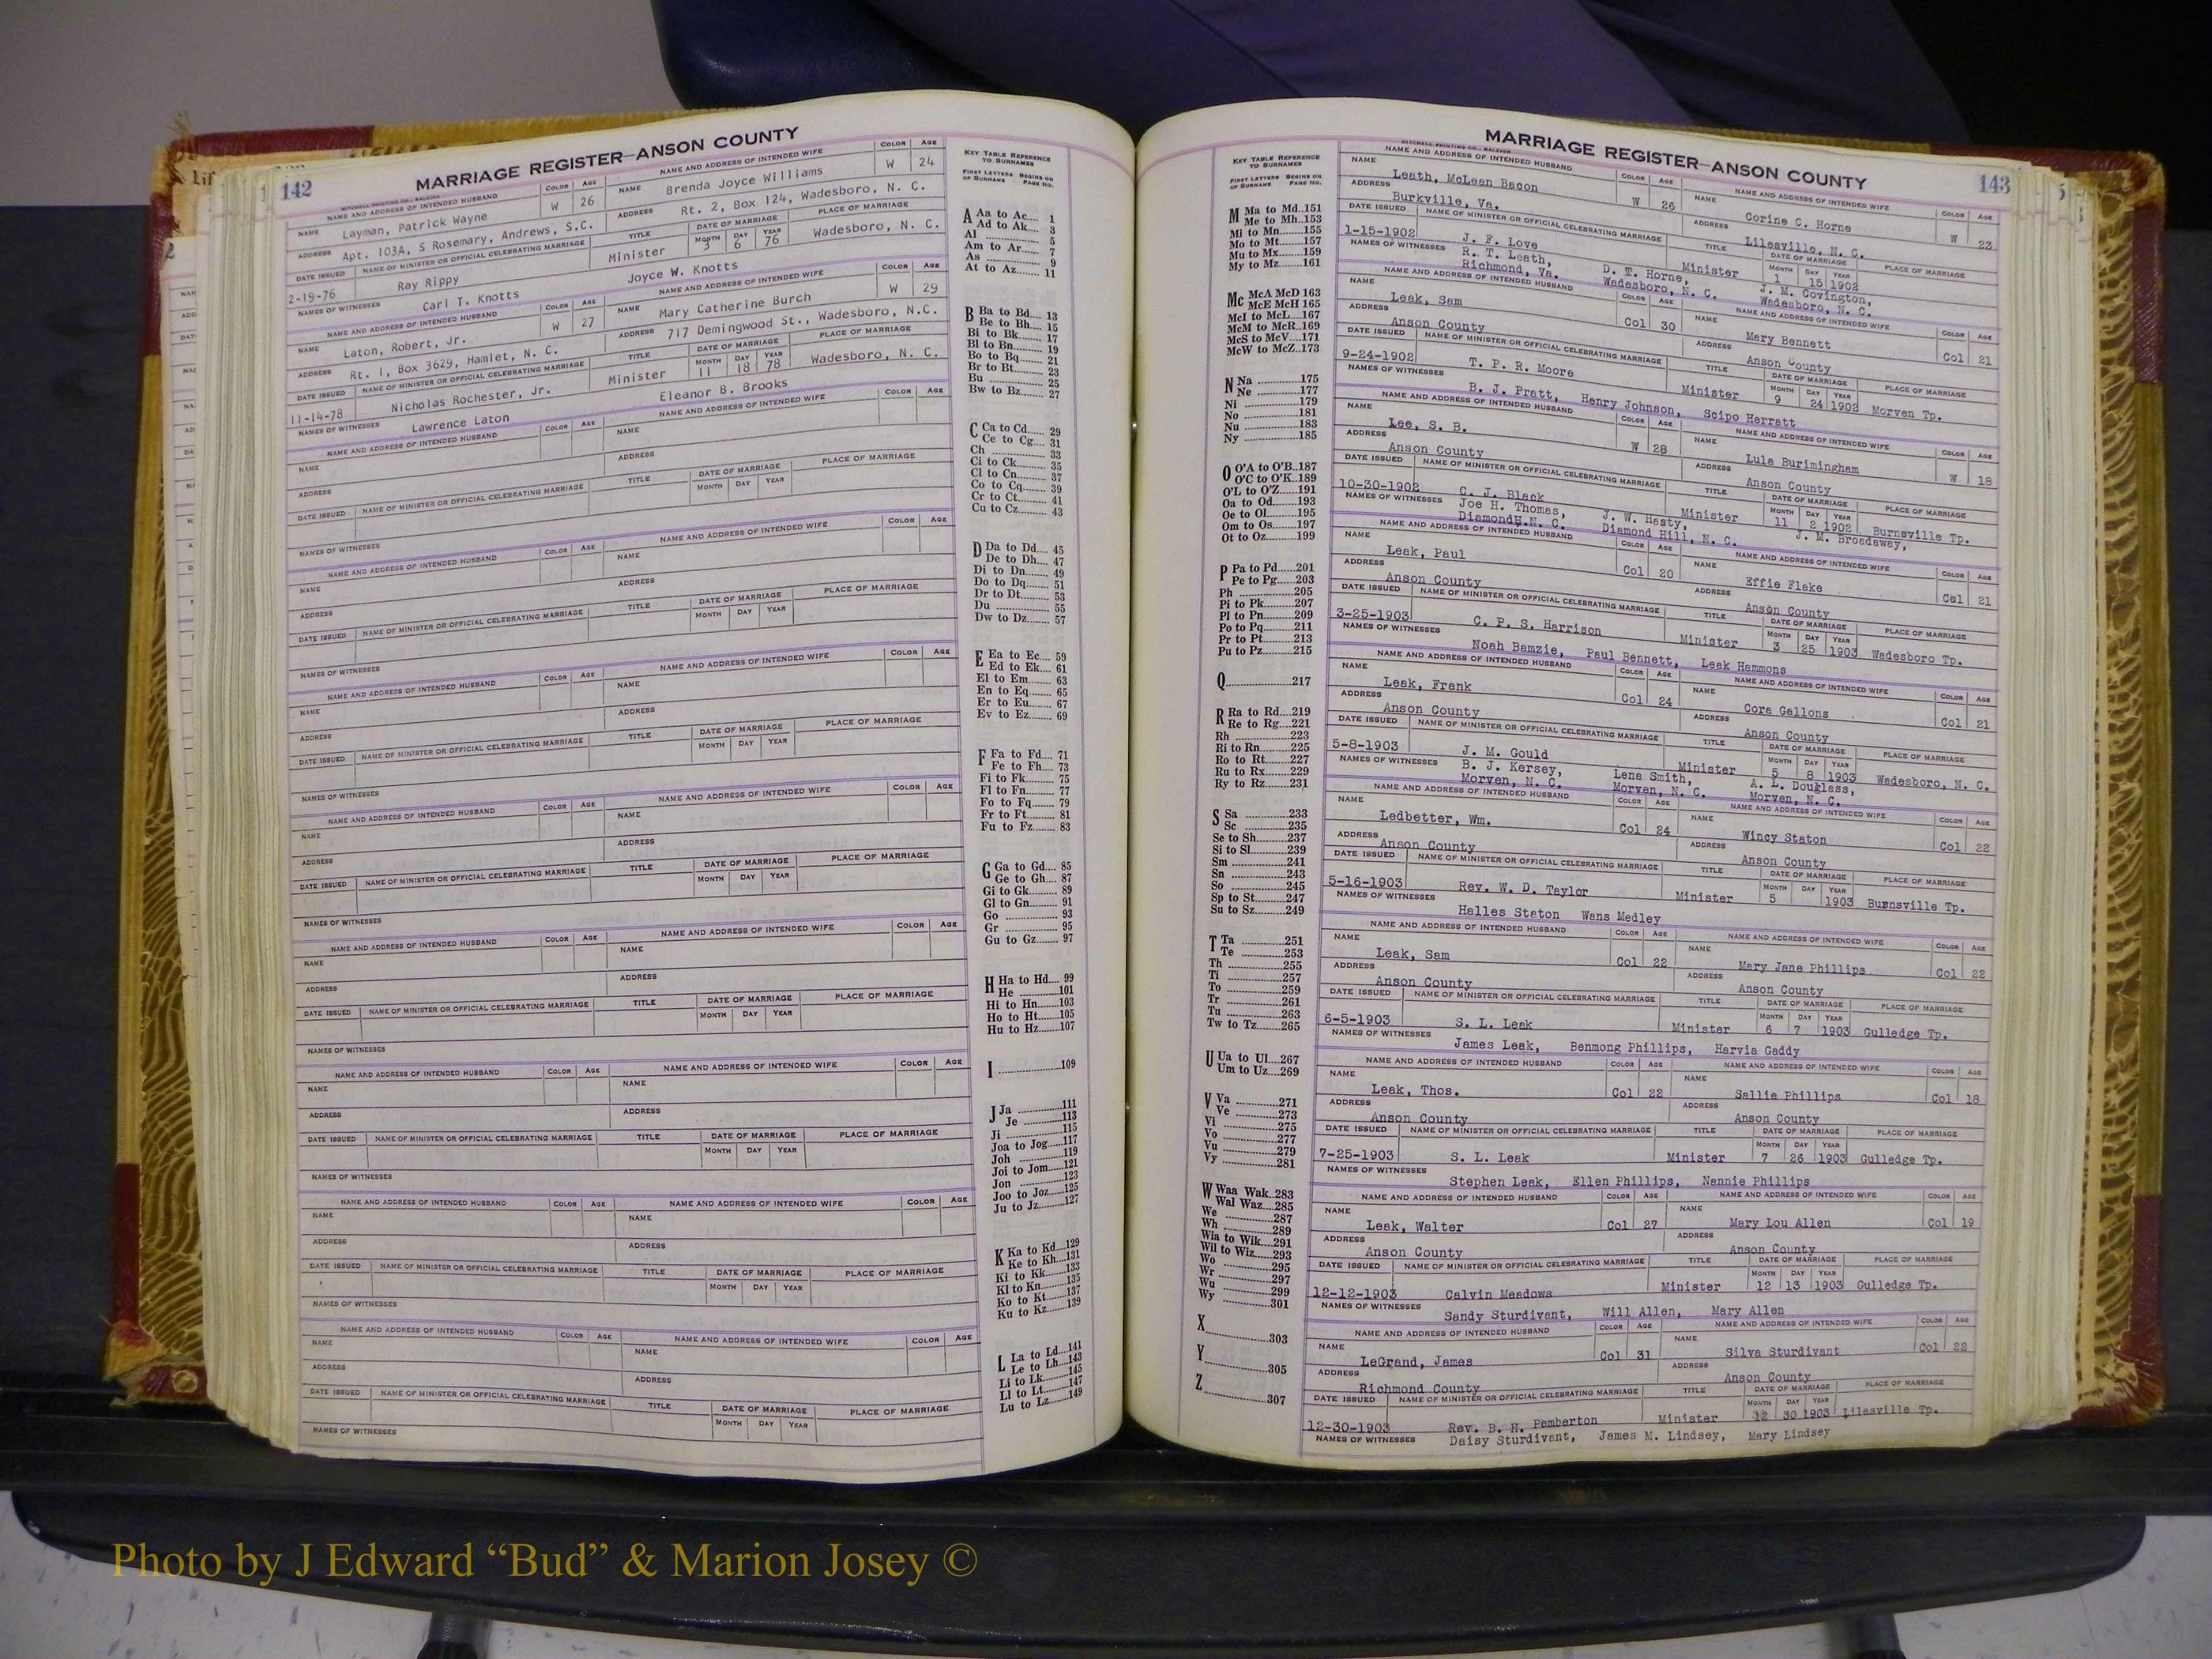 142
MARRIAGE REGISTER—ANSON COUNTY
MITCHELL PRINTING CO., RALEIGH
NAME AND ADDRESS OF INTENDED HUSBAND COLOR AGE NAME AND ADDRESS OF INTENDED WIFE COLOR AGE
NAME Layman, Patrick Wayne W 26 NAME Brenda Joyce Williams W 24
ADDRESS Apt. 103A, S Rosemary, Andrews, S.C. ADDRESS Rt. 2, Box 124, Wadesboro, N. C.
DATE ISSUED NAME OF MINISTER OR OFFICIAL CELEBRATING MARRIAGE TITLE DATE OF MARRIAGE PLACE OF MARRIAGE
MONTH DAY YEAR
2-19-76 Ray Rippy Minister 3 6 76 Wadesboro, N. C.
NAMES OF WITNESSES Carl T. Knotts Joyce W. Knotts
NAME AND ADDRESS OF INTENDED HUSBAND COLOR AGE NAME AND ADDRESS OF INTENDED WIFE COLOR AGE
NAME Laton, Robert, Jr. W 27 Mary Catherine Burch W 29
ADDRESS Rt. 1, Box 3629, Hamlet, N. C. ADDRESS 717 Demingwood St., Wadesboro, N.C.
DATE ISSUED NAME OF MINISTER OR OFFICIAL CELEBRATING MARRIAGE TITLE DATE OF MARRIAGE PLACE OF MARRIAGE
MONTH DAY YEAR
11-14-78 Nicholas Rochester, Jr. Minister 11 18 78 Wadesboro, N. C.
NAMES OF WITNESSES Lawrence Laton Eleanor B. Brooks
NAME AND ADDRESS OF INTENDED HUSBAND COLOR AGE NAME AND ADDRESS OF INTENDED WIFE COLOR AGE
NAME NAME
ADDRESS ADDRESS
DATE ISSUED NAME OF MINISTER OR OFFICIAL CELEBRATING MARRIAGE TITLE DATE OF MARRIAGE PLACE OF MARRIAGE
MONTH DAY YEAR
NAMES OF WITNESSES
KEY TABLE REFERENCE
TO SURNAMES
FIRST LETTERS OF SURNAME BEGINS ON PAGE NO.
A Aa to Ac.... 1
Ad to Ak.... 3
Al .... 5
Am to Ar.... 7
As .... 9
At to Az.... 11
B Ba to Bd.... 13
Be to Bh.... 15
Bi to Bk.... 17
Bl to Bn.... 19
Bo to Bq.... 21
Br to Bt.... 23
Bu .... 25
Bw to Bz.... 27
C Ca to Cd.... 29
Ce to Cg.... 31
Ch .... 33
Ci to Ck.... 35
Cl to Cn.... 37
Co to Cq.... 39
Cr to Ct.... 41
Cu to Cz.... 43
D Da to Dd.... 45
De to Dh.... 47
Di to Dn.... 49
Do to Dq.... 51
Dr to Dt.... 53
Du .... 55
Dw to Dz.... 57
E Ea to Ec.... 59
Ed to Ek.... 61
El to Em.... 63
En to Eq.... 65
Er to Eu.... 67
Ev to Ez.... 69
F Fa to Fd.... 71
Fe to Fh.... 73
Fi to Fk.... 75
Fl to Fn.... 77
Fo to Fq.... 79
Fr to Ft.... 81
Fu to Fz.... 83
G Ga to Gd.... 85
Ge to Gh.... 87
Gi to Gk.... 89
Gl to Gn.... 91
Go .... 93
Gr .... 95
Gu to Gz.... 97
H Ha to Hd.... 99
He ....101
Hi to Hn....103
Ho to Ht....105
Hu to Hz....107
I ....109
J Ja ....111
Je ....113
Ji ....115
Joa to Jog....117
Joh ....119
Joi to Jom....121
Jon ....123
Joo to Joz....125
Ju to Jz....127
K Ka to Kd....129
Ke to Kh....131
Ki to Kk....133
Kl to Kn....135
Ko to Kt....137
Ku to Kz....139
L La to Ld....141
Le to Lh....143
Li to Lk....145
Ll to Lt....147
Lu to Lz....149
MARRIAGE REGISTER—ANSON COUNTY
143
KEY TABLE REFERENCE
TO SURNAMES
FIRST LETTERS OF SURNAME BEGINS ON PAGE NO.
M Ma to Md..151
Me to Mh..153
Mi to Mn....155
Mo to Mt....157
Mu to Mx....159
My to Mz....161
Mc McA McD 163
McE McH 165
McI to McL...167
McM to McR..169
McS to McV....171
McW to McZ..173
N Na ....175
Ne ....177
Ni ....179
No ....181
Nu ....183
Ny ....185
O O'A to O'B..187
O'C to O'K..189
O'L to O'Z....191
Oa to Od....193
Oe to Ol....195
Om to Os....197
Ot to Oz....199
P Pa to Pd....201
Pe to Pg....203
Ph ....205
Pi to Pk....207
Pl to Pn....209
Po to Pq....211
Pr to Pt....213
Pu to Pz....215
Q....217
R Ra to Rd....219
Re to Rg....221
Rh ....223
Ri to Rn....225
Ro to Rt....227
Ru to Rx....229
Ry to Rz....231
S Sa ....233
Sc ....235
Se to Sh....237
Si to Sl....239
Sm ....241
Sn ....243
So ....245
Sp to St....247
Su to Sz....249
T Ta ....251
Te ....253
Th ....255
Ti ....257
To ....259
Tr ....261
Tu ....263
Tw to Tz....265
U Ua to Ul....267
Um to Uz....269
V Va ....271
Ve ....273
Vi ....275
Vo ....277
Vu ....279
Vy ....281
W Waa Wak..283
Wal Waz....285
We ....287
Wh ....289
Wia to Wik....291
Wil to Wiz....293
Wo ....295
Wr ....297
Wu ....299
Wy ....301
X....303
Y....305
Z....307
NAME AND ADDRESS OF INTENDED HUSBAND COLOR AGE NAME AND ADDRESS OF INTENDED WIFE COLOR AGE
NAME Leath, McLean Bacon W 26 NAME Corine C. Horne W 23
ADDRESS Burkville, Va. ADDRESS Lilesville, N. C.
DATE ISSUED NAME OF MINISTER OR OFFICIAL CELEBRATING MARRIAGE TITLE DATE OF MARRIAGE PLACE OF MARRIAGE
1-15-1902 J. F. Love Minister 1 15 1902
NAMES OF WITNESSES R. T. Leath, D. T. Horne, J. M. Covington,
Richmond, Va. Wadesboro, N. C. Wadesboro, N. C.
NAME Leak, Sam Col 30 NAME Mary Bennett Col 21
ADDRESS Anson County ADDRESS Anson County
9-24-1902 T. P. R. Moore Minister 9 24 1902 Morven Tp.
NAMES OF WITNESSES B. J. Pratt, Henry Johnson, Scipo Herratt
NAME Lee, S. B. W 28 NAME Lula Burimingham W 18
ADDRESS Anson County ADDRESS Anson County
10-30-1902 C. J. Black Minister 11 2 1902 Burnsville Tp.
NAMES OF WITNESSES Joe H. Thomas, J. W. Hasty, J. M. Broadaway,
DiamondH.N. C. Diamond Hill, N. C.
NAME Leak, Paul Col 20 NAME Effie Flake Col 21
ADDRESS Anson County ADDRESS Anson County
3-25-1903 C. P. S. Harrison Minister 3 25 1903 Wadesboro Tp.
NAMES OF WITNESSES Noah Bamzie, Paul Bennett, Leak Hammons
NAME Leak, Frank Col 24 NAME Cora Gallons Col 21
ADDRESS Anson County ADDRESS Anson County
5-8-1903 J. M. Gould Minister 5 8 1903 Wadesboro, N. C.
NAMES OF WITNESSES B. J. Kersey, Lena Smith, A. L. Douglass,
Morven, N. C. Morven, N. C. Morven, N. C.
NAME Ledbetter, Wm. Col 24 NAME Wincy Staton Col 22
ADDRESS Anson County ADDRESS Anson County
5-16-1903 Rev. W. D. Taylor Minister 5 1903 Burnsville Tp.
NAMES OF WITNESSES Halles Staton Wans Medley
NAME Leak, Sam Col 22 NAME Mary Jane Phillips Col 22
ADDRESS Anson County ADDRESS Anson County
6-5-1903 S. L. Leak Minister 6 7 1903 Gulledge Tp.
NAMES OF WITNESSES James Leak, Benmong Phillips, Harvia Gaddy
NAME Leak, Thos. Col 22 NAME Sallie Phillips Col 18
ADDRESS Anson County ADDRESS Anson County
7-25-1903 S. L. Leak Minister 7 26 1903 Gulledge Tp.
NAMES OF WITNESSES Stephen Leak, Ellen Phillips, Nannie Phillips
NAME Leak, Walter Col 27 NAME Mary Lou Allen Col 19
ADDRESS Anson County ADDRESS Anson County
12-12-1903 Calvin Meadows Minister 12 13 1903 Gulledge Tp.
NAMES OF WITNESSES Sandy Sturdivant, Will Allen, Mary Allen
NAME LeGrand, James Col 31 NAME Silva Sturdivant Col 22
ADDRESS Richmond County ADDRESS Anson County
12-30-1903 Rev. B. H. Pemberton Minister 12 30 1903 Lilesville Tp.
NAMES OF WITNESSES Daisy Sturdivant, James M. Lindsey, Mary Lindsey
Photo by J Edward “Bud” & Marion Josey ©